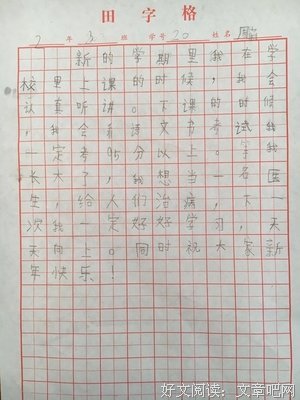 田字格
2 年 3 班 学号 20 姓名
新的学期里我在学
校里上课的时候,我会
认真听讲。下课的时候
,我会看语文书考试我
一定考95分以上。等我
长大了,我想当一名医
生,给人们治病,下一
次我一定好好学习,天
天向上。同时祝大家新
年快乐!
好文阅读:文章吧网